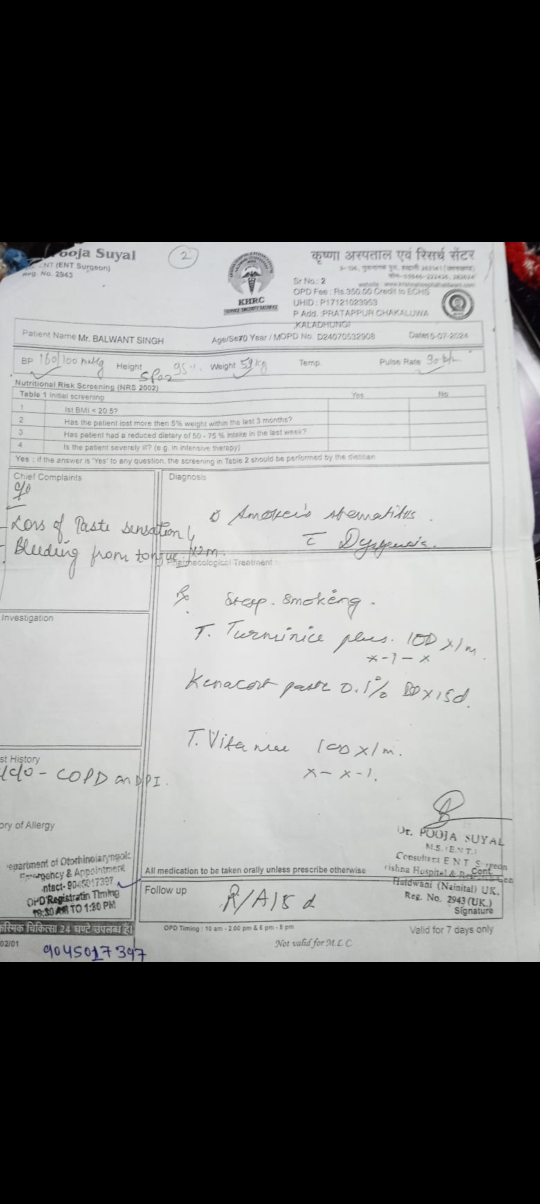 ooja Suyal
NT (ENT Surgeon)
Reg. No. 2943
2
KHRC
कृष्णा अस्पताल एवं रिसर्च सेंटर
Sr No.: 2
OPD Fee : Rs.350.00 Credit to ECHS
UHID : P17121023953
P Add. :PRATAPPUR CHAKALUWA
KALADHUNGI
Patient Name Mr. BALWANT SINGH
Age/Sex70 Year / M
OPD No. D24070532908
Date:5-07-2024
BP 160/100 mmHg Height SPO2 95% Weight 59 kg Temp. Pulse Rate
Nutritional Risk Screening (NRS 2002)
Table 1 Initial screening Yes No
1 Ist BMI < 20.5?
2 Has the patient lost more then 5% weight within the last 3 months?
3 Has patient had a reduced dietary of 50 - 75 % intene in the last week?
4 Is the patient severely il? (e.g. in intensive therapy)
Yes : if the answer is 'Yes' to any question, the screening in Table 2 should be performed by the dietitian
Chief Complaints
c/o
- Loss of Taste sensation
- Bleeding from tongue
Diagnosis
Smoker's stomatitis
Pharmacological Treatment :
Rx Stop smoking.
T. plus. 100 x 1m
x-1-x
Kenacort paste 0.1% x 15d.
Investigation
T. 100 x 1m.
x-x-1.
st History
COPD on DPI
ory of Allergy
Dr. POOJA SUYAL
M.S. (ENT)
Consultant E N T Surgeon
Haldwani (Nainital) UK.
Reg. No. 2943 (UK.)
Signature
epartment of Otorhinolaryngolo
Emergency & Appointment
ntact- 9045017397
OPD Registratin Timing
10:30 AM TO 1:30 PM
All medication to be taken orally unless prescribe otherwise
Follow up
R/A 15 d
चिकित्सा 24 घण्टे उपलब्ध है।
OPD Timing : 10 am - 2.00 pm & 6 pm - 8 pm
Valid for 7 days only
02/01
Not valid for M.L.C
9045017397